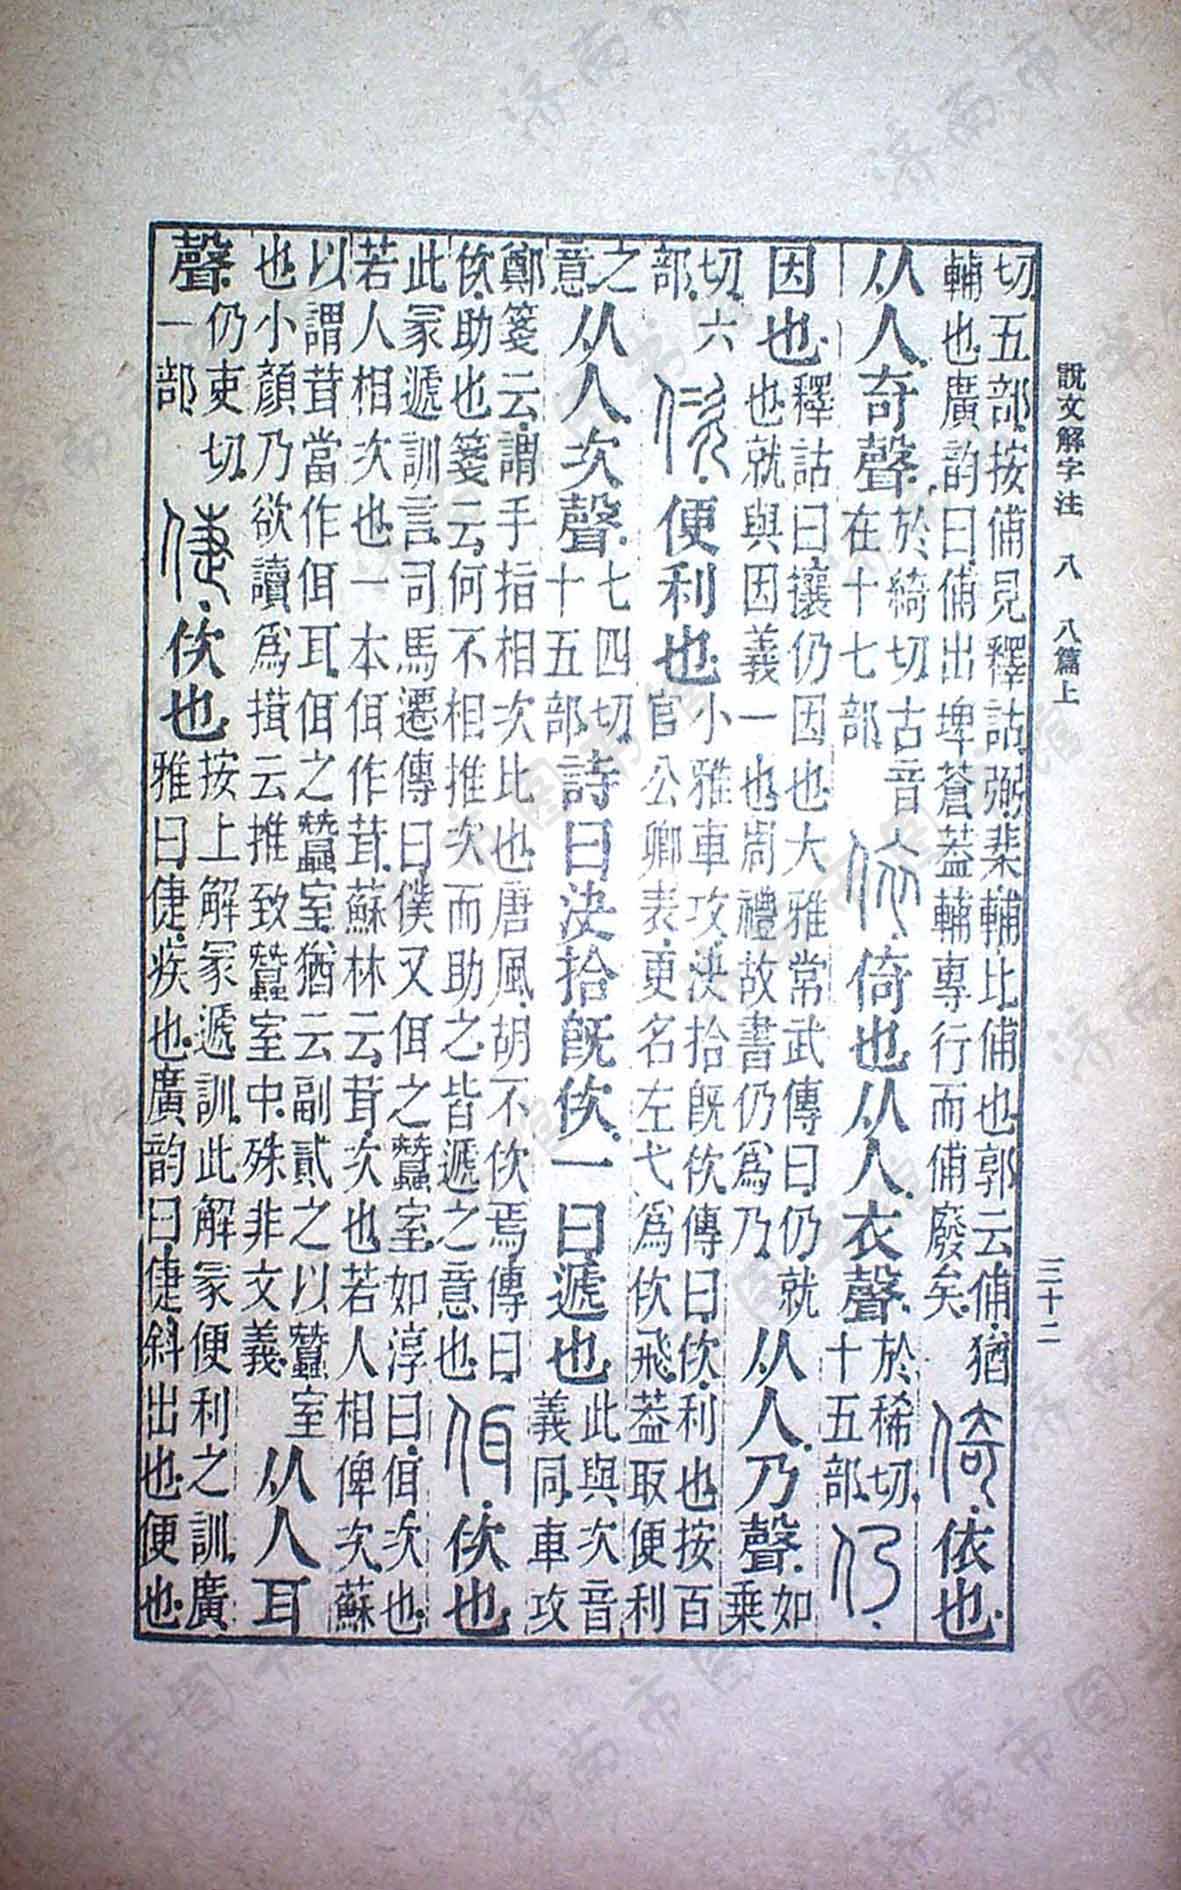 說文解字注 八 八篇上 三十二
切五部按俌見釋詁弼棐輔比俌也郭云俌猶
輔也廣韵曰俌出埤蒼葢輔專行而俌廢矣
倚依也
从人奇聲
於綺切古音
在十七部
依倚也从人衣聲
於稀切
十五部
仍
因也
釋詁曰攘仍因也大雅常武傳曰仍就
也就與因義一也周禮故書仍爲乃
从人乃聲
如
乘
切六
部
佽便利也
小雅車攻決拾旣佽傳曰佽利也按百
官公卿表更名左弋爲佽飛葢取便利
之
意
从人次聲
七四切
十五部
詩曰決拾旣佽一曰遞也
此與次音
義同車攻
鄭箋云謂手指相次比也唐風胡不佽焉傳曰
佽助也箋云何不相推次而助之皆遞之意也
佴佽也
此冡遞訓言司馬遷傳曰僕又佴之蠶室如淳曰佴次也
若人相次也一本佴作茸蘇林云茸次也若人相俾次蘇
以謂茸當作佴耳佴之蠶室猶云副貳之以蠶室
也小顏乃欲讀爲揖云推致蠶室中殊非文義
从人耳
聲
仍吏切
一部
倢佽也
按上解冡遞訓此解冡便利之訓廣
雅曰倢疾也廣韵曰倢斜出也便也